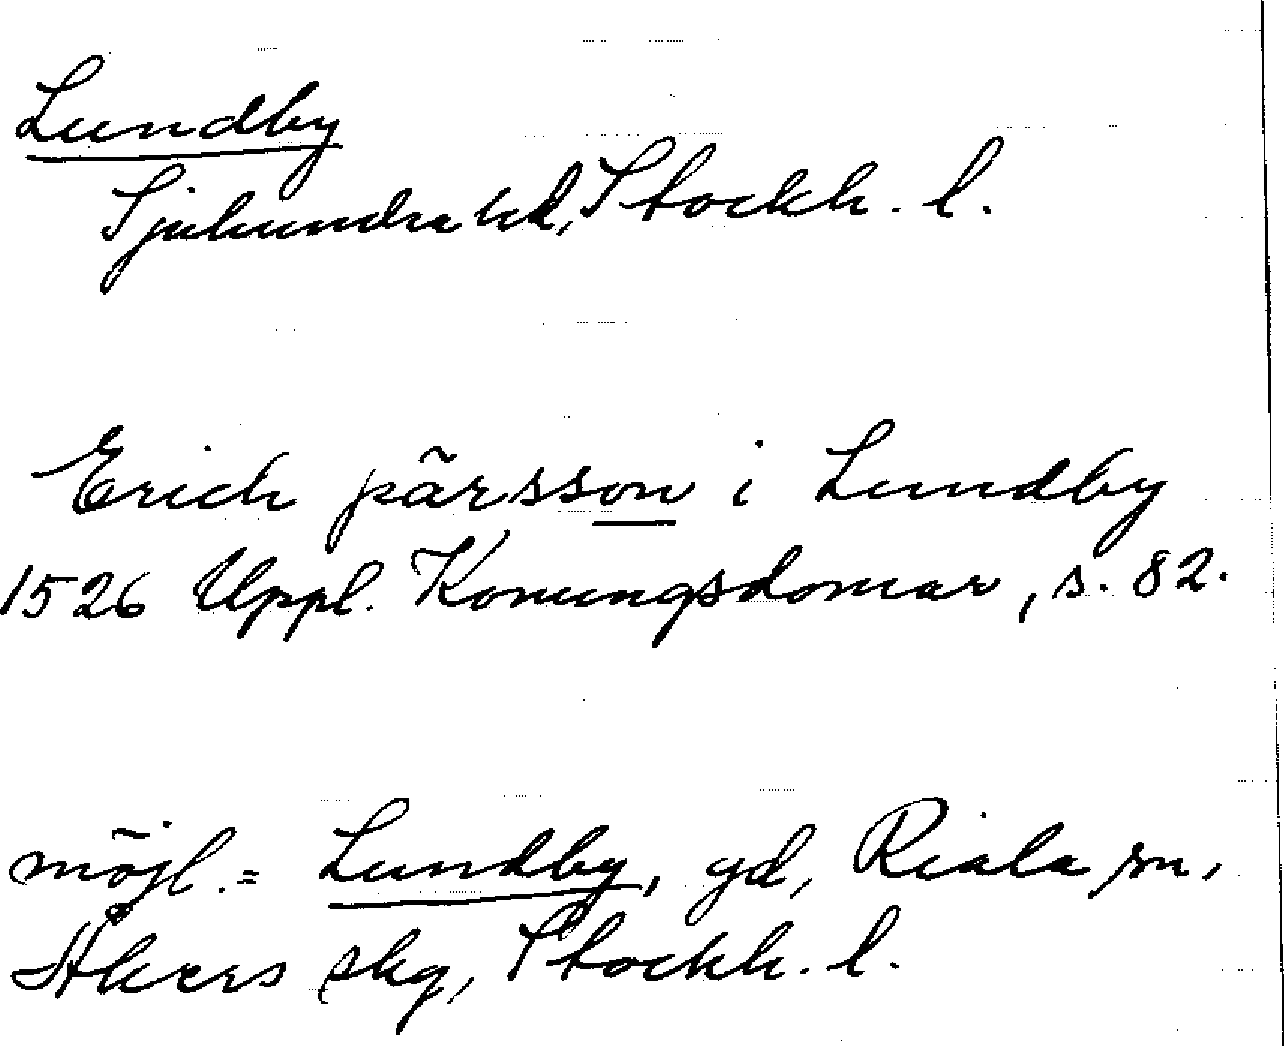 Lundby
Sjuhundra hd, Stockh. l.
Erich pärsson i Lundby
1526 Uppl. Konungsdomar, s. 82.
möjl. = Lundby, gd, Riala sn,
Åkers skg, Stockh. l.